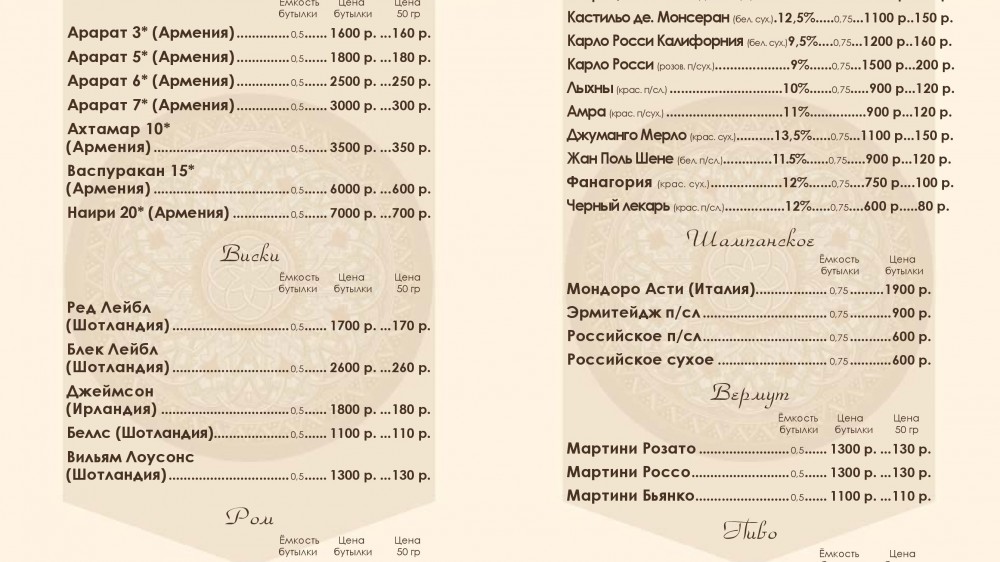 Ёмкость Цена Цена
бутылки бутылки 50 гр
Арарат 3* (Армения)..............0,5...... 1600 р. ...160 р.
Арарат 5* (Армения)..............0,5...... 1800 р. ...180 р.
Арарат 6* (Армения)..............0,5...... 2500 р. ...250 р.
Арарат 7* (Армения)..............0,5...... 3000 р. ...300 р.
Ахтамар 10*
(Армения)..............0,5...... 3500 р. ...350 р.
Васпуракан 15*
(Армения)..............0,5...... 6000 р. ...600 р.
Наири 20* (Армения)..............0,5...... 7000 р. ...700 р.
Виски
Ёмкость Цена Цена
бутылки бутылки 50 гр
Ред Лейбл
(Шотландия)..............0,5...... 1700 р. ...170 р.
Блек Лейбл
(Шотландия)..............0,5...... 2600 р. ...260 р.
Джеймсон
(Ирландия)..............0,5...... 1800 р. ...180 р.
Беллс (Шотландия)..............0,5...... 1100 р. ...110 р.
Вильям Лоусонс
(Шотландия)..............0,5...... 1300 р. ...130 р.
Ром
Ёмкость Цена Цена
бутылки бутылки 50 гр
Кастильо де. Монсеран (бел. сух.).12,5%.....0,75...1100 р..150 р.
Карло Росси Калифорния (бел. сух.)9,5%....0,75...1200 р..160 р.
Карло Росси (розов. п/сух.)..............9%......0,75...1500 р...200 р.
Лыхны (крас. п/сл.)..............10%......0,75.....900 р...120 р.
Амра (крас. п/сух.)..............11%..............900 р...120 р.
Джуманго Мерло (крас. сух.)..........13,5%....0,75...1100 р...150 р.
Жан Поль Шене (бел. п/сл.)..........11.5%.....0,75....900 р...120 р.
Фанагория (крас. сух.)..............12%.....0,75....750 р....100 р.
Черный лекарь (крас. п/сл.)............12%.....0,75....600 р.....80 р.
Шампанское
Ёмкость Цена
бутылки бутылки
Мондоро Асти (Италия)..............0,75.........1900 р.
Эрмитейдж п/сл..............0,75...........900 р.
Российское п/сл..............0,75...........600 р.
Российское сухое..............0,75...........600 р.
Вермут
Ёмкость Цена Цена
бутылки бутылки 50 гр
Мартини Розато..............0,5...... 1300 р. ...130 р.
Мартини Россо..............0,5...... 1300 р. ...130 р.
Мартини Бьянко..............0,5...... 1100 р. ...110 р.
Пиво
Ёмкость Цена